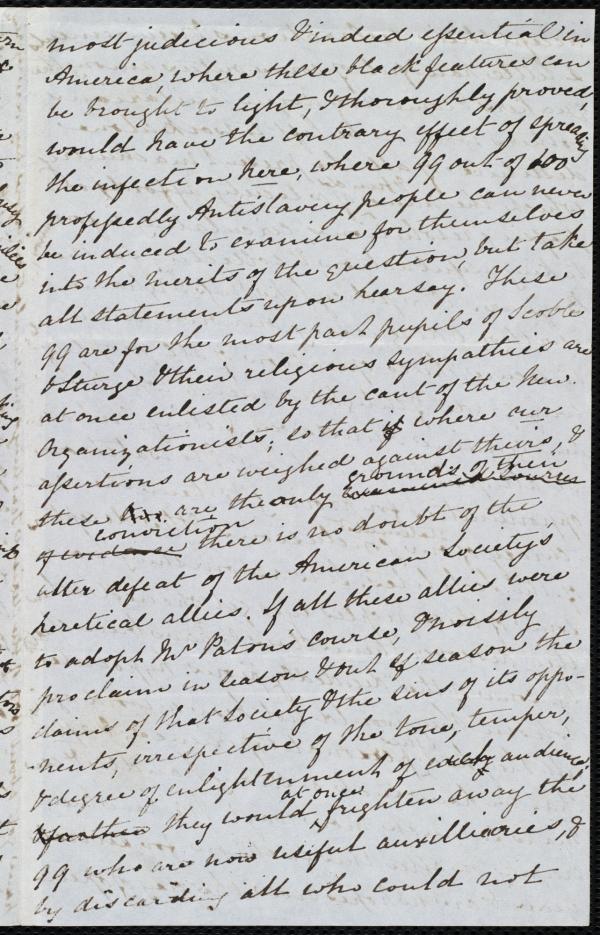 most judicious & indeed essential in
America, where these black features can
be brought to light, & thoroughly proved,
would have the contrary effect of spreading
the infection here, where 99 out of 100
professedly Antislavery people can never
be induced to examine for themselves
into the merits of the question, but take
all statements upon hearsay. These
99 are for the most part pupils of Scoble
& Sturge & their religious sympathies are
at once enlisted by the cant of the New
Organizationists; so that if where our
assertions are weighed against theirs, &
these are the only grounds of their
conviction there is no doubt of the
utter defeat of the American Society's
heretical allies. If all these allies were
to adopt Mr Paton's course, & noisily
proclaim in season & out of season the
claims of that Society & the sins of its oppo-
nents, irrespective of the tone, temper,
& degree of enlightenment of each audience,
they would at once frighten away the
99 who are now useful auxilliaries, &
by discarding all who could not